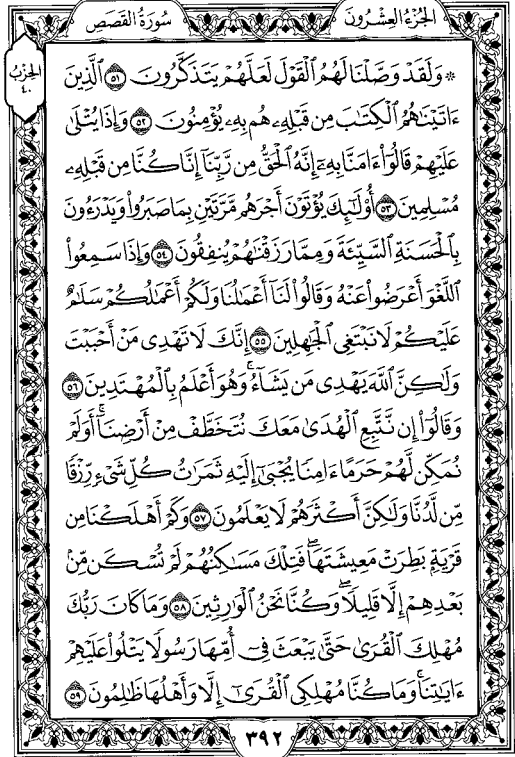 الجزء العشرون
سورة القصص
الحزب
٤٠
* وَلَقَدْ وَصَّلْنَا لَهُمُ الْقَوْلَ لَعَلَّهُمْ يَتَذَكَّرُونَ ۝٥١ الَّذِينَ
ءَاتَيْنَاهُمُ الْكِتَابَ مِن قَبْلِهِ هُم بِهِ يُؤْمِنُونَ ۝٥٢ وَإِذَا يُتْلَى
عَلَيْهِمْ قَالُوا ءَامَنَّا بِهِ إِنَّهُ الْحَقُّ مِن رَّبِّنَا إِنَّا كُنَّا مِن قَبْلِهِ
مُسْلِمِينَ ۝٥٣ أُوْلَٰئِكَ يُؤْتَوْنَ أَجْرَهُم مَّرَّتَيْنِ بِمَا صَبَرُوا وَيَدْرَءُونَ
بِالْحَسَنَةِ السَّيِّئَةَ وَمِمَّا رَزَقْنَٰهُمْ يُنفِقُونَ ۝٥٤ وَإِذَا سَمِعُوا
اللَّغْوَ أَعْرَضُوا عَنْهُ وَقَالُوا لَنَا أَعْمَٰلُنَا وَلَكُمْ أَعْمَٰلُكُمْ سَلَٰمٌ
عَلَيْكُمْ لَا نَبْتَغِي الْجَٰهِلِينَ ۝٥٥ إِنَّكَ لَا تَهْدِي مَنْ أَحْبَبْتَ
وَلَٰكِنَّ اللَّهَ يَهْدِي مَن يَشَاءُ ۚ وَهُوَ أَعْلَمُ بِالْمُهْتَدِينَ ۝٥٦
وَقَالُوا إِن نَّتَّبِعِ الْهُدَىٰ مَعَكَ نُتَخَطَّفْ مِنْ أَرْضِنَا ۚ أَوَلَمْ
نُمَكِّن لَّهُمْ حَرَمًا ءَامِنًا يُجْبَىٰ إِلَيْهِ ثَمَرَٰتُ كُلِّ شَيْءٍ رِّزْقًا
مِّن لَّدُنَّا وَلَٰكِنَّ أَكْثَرَهُمْ لَا يَعْلَمُونَ ۝٥٧ وَكَمْ أَهْلَكْنَا مِن
قَرْيَةٍ بَطِرَتْ مَعِيشَتَهَا ۖ فَتِلْكَ مَسَٰكِنُهُمْ لَمْ تُسْكَن مِّن
بَعْدِهِمْ إِلَّا قَلِيلًا ۖ وَكُنَّا نَحْنُ الْوَٰرِثِينَ ۝٥٨ وَمَا كَانَ رَبُّكَ
مُهْلِكَ الْقُرَىٰ حَتَّىٰ يَبْعَثَ فِي أُمِّهَا رَسُولًا يَتْلُوا عَلَيْهِمْ
ءَايَٰتِنَا ۚ وَمَا كُنَّا مُهْلِكِي الْقُرَىٰ إِلَّا وَأَهْلُهَا ظَٰلِمُونَ ۝٥٩
٣٩٢